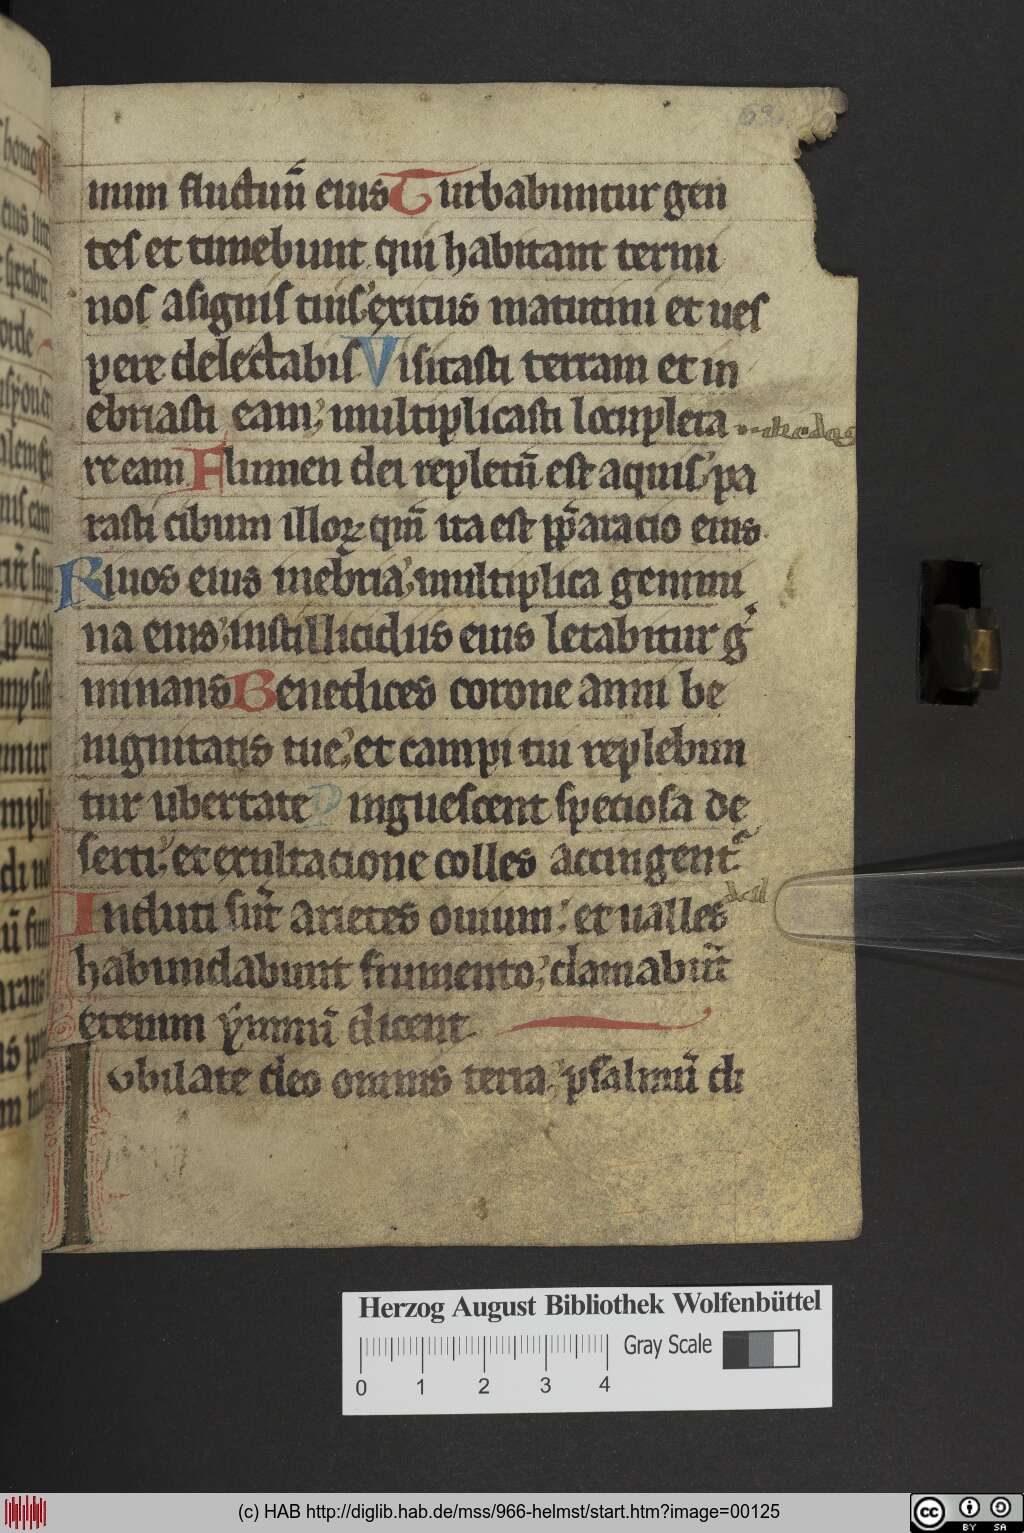 num fluctuū eius Turbabuntur gen
tes et timebunt qui habitant termi
nos a signis tuis exitus matutini et ues
pere delectabis Visitasti terram et in
ebriasti eam multiplicasti locupleta
re eam Flumen dei repletū est aquis pa
rasti cibum illoꝝ qm̄ ita est pp̄aratio eius
Riuos eius inebria multiplica genimi
na eius instillicidiis eius letabitur g͛
minans Benedices corone anni be
nignitatis tue et campi tui replebun
tur ubertate Pinguescent speciosa de
serti et exultatione colles accingent᷑
Induti sūt arietes ouium et ualles
habundabunt frumento clamabūt
etenim ẏmnū dicent
Iubilate deo omnis terra psalmū di
Herzog August Bibliothek Wolfenbüttel
0 1 2 3 4 Gray Scale
(c) HAB http://diglib.hab.de/mss/966-helmst/start.htm?image=00125
cc BY SA